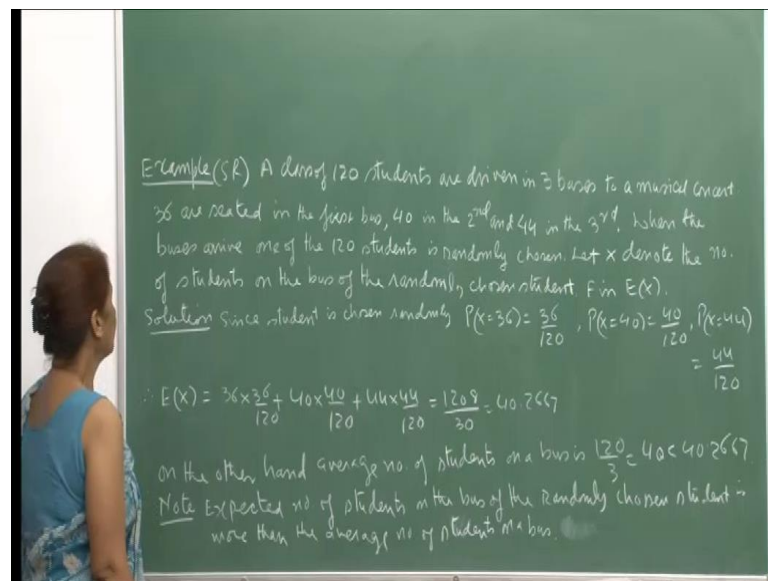 Example (SR) A class of 120 students are driven in 3 buses to a musical concert
36 are seated in the first bus, 40 in the 2nd and 44 in the 3rd. When the
buses arrive one of the 120 students is randomly chosen. Let X denote the no.
of students on the bus of the randomly chosen student. Fin E(X).
Solution Since student is chosen randomly P(X=36) = 36/120, P(X=40) = 40/120, P(X=44)
= 44/120
∴ E(X) = 36×36/120 + 40×40/120 + 44×44/120 = 1208/30 = 40.2667
on the other hand average no. of students on a bus is 120/3 = 40 < 40.2667
Note Expected no of students on the bus of the Randomly chosen student is
more than the average no of students on a bus.